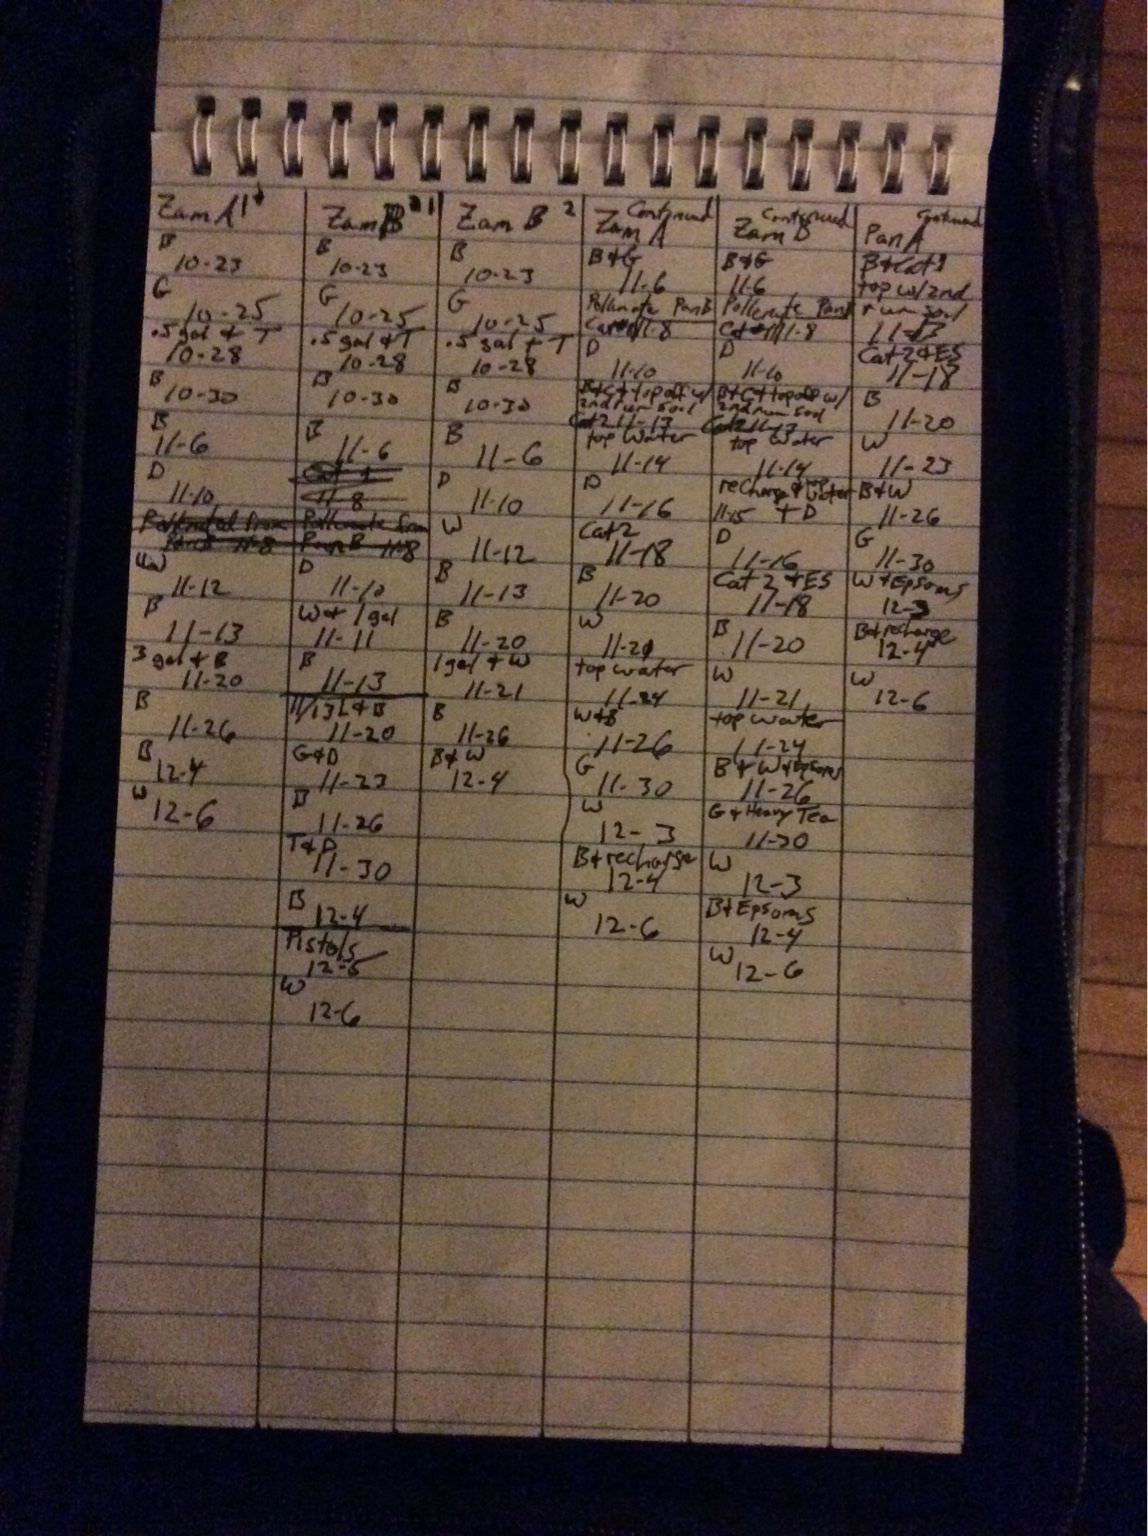 Zam A 1
B
10-23
G
10-25
.5 gal & T
10-28
B
10-30
B
11-6
D
11-10
Pollenated from
PanB 11-8
W
11-12
B
11-13
3 gal & B
11-20
B
11-26
B
12-4
W
12-6
Zam B 1
B
10-23
G
10-25
.5 gal & T
10-28
B
10-30
B
11-6
Cat 1
11-8
Pollenate from
Pan B 11-8
D
11-10
W & 1 gal
11-11
B
11-13
& B
11-20
G&D
11-23
B
11-26
T&D
11-30
B
12-4
Pistols
12-5
W
12-6
Zam B 2
B
10-23
G
10-25
.5 gal & T
10-28
B
10-30
B
11-6
D
11-10
W
11-12
B
11-13
B
11-20
1 gal & W
11-21
B
11-26
B & W
12-4
Continued
Zam A
B&G
11-6
Pollenate PanB
11-8
D
11-10
B&C& top off w/
2nd run soil
Cat 2 11-13
top Water
11-14
D
11-16
Cat 2
11-18
B
11-20
W
11-21
top water
11-24
W&B
11-26
G
11-30
W
12-3
B& recharge
12-4
W
12-6
Continued
Zam B
B&G
11-6
Pollenate PanB
11-8
D
11-10
B&C& top off w/
2nd run soil
11-13
top Water
11-14
recharge & water
11-15 & D
D
11-16
Cat 2 & ES
11-18
B
11-20
W
11-21
top water
11-24
B & W & Epsoms
11-26
G & Heavy Tea
11-30
W
12-3
B& Epsoms
12-4
W
12-6
Continued
Pan A
B & Cat 1
top w/ 2nd
run soil
11-13
Cat 2 & ES
11-18
B
11-20
W
11-23
B&W
11-26
G
11-30
W & Epsoms
12-3
B& recharge
12-4
W
12-6